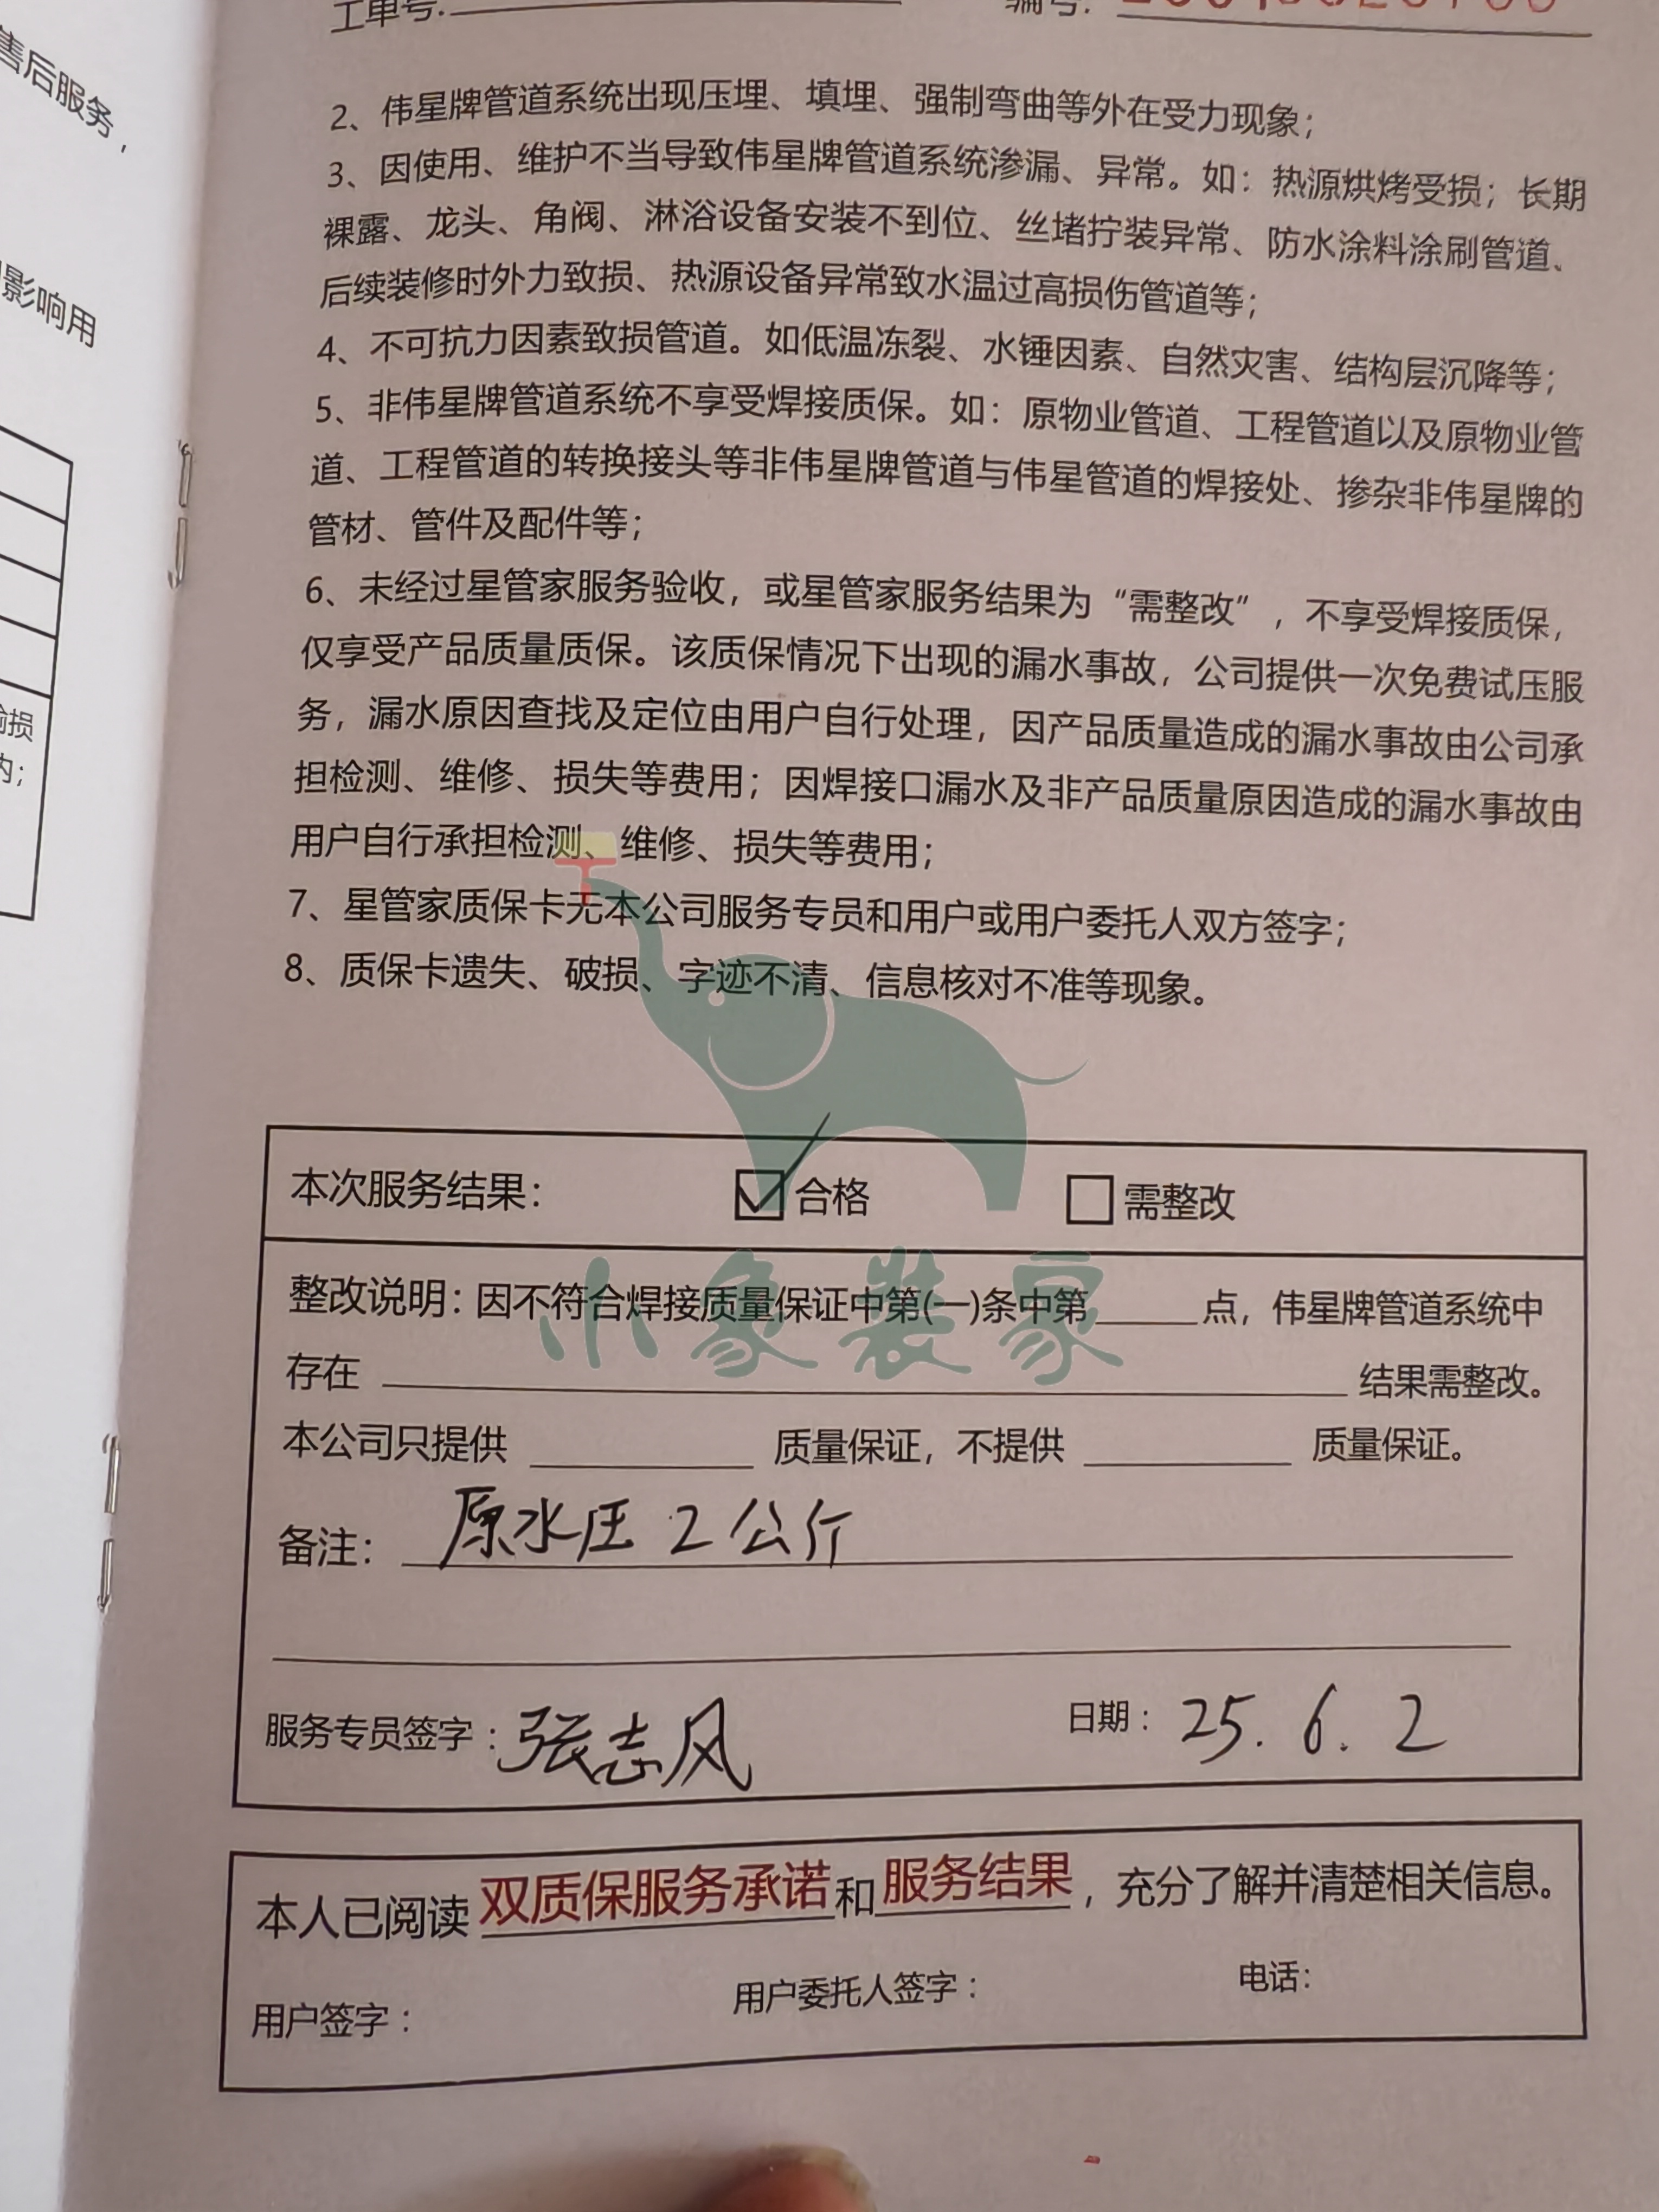 售后服务,
影响用
工单号:
编号:
2、伟星牌管道系统出现压埋、填埋、强制弯曲等外在受力现象；
3、因使用、维护不当导致伟星牌管道系统渗漏、异常。如：热源烘烤受损；长期
裸露、龙头、角阀、淋浴设备安装不到位、丝堵拧装异常、防水涂料涂刷管道、
后续装修时外力致损、热源设备异常致水温过高损伤管道等；
4、不可抗力因素致损管道。如低温冻裂、水锤因素、自然灾害、结构层沉降等；
5、非伟星牌管道系统不享受焊接质保。如：原物业管道、工程管道以及原物业管
道、工程管道的转换接头等非伟星牌管道与伟星管道的焊接处、掺杂非伟星牌的
管材、管件及配件等；
6、未经过星管家服务验收，或星管家服务结果为“需整改”，不享受焊接质保，
仅享受产品质量质保。该质保情况下出现的漏水事故，公司提供一次免费试压服
务，漏水原因查找及定位由用户自行处理，因产品质量造成的漏水事故由公司承
担检测、维修、损失等费用；因焊接口漏水及非产品质量原因造成的漏水事故由
用户自行承担检测、维修、损失等费用；
7、星管家质保卡无本公司服务专员和用户或用户委托人双方签字；
8、质保卡遗失、破损、字迹不清、信息核对不准等现象。
本次服务结果： 合格 需整改
小象装家
整改说明：因不符合焊接质量保证中第(一)条中第 点，伟星牌管道系统中
存在 结果需整改。
本公司只提供 质量保证，不提供 质量保证。
备注： 原水压 2公斤
服务专员签字：张志风 日期：25.6.2
本人已阅读双质保服务承诺和服务结果，充分了解并清楚相关信息。
用户签字： 用户委托人签字： 电话：